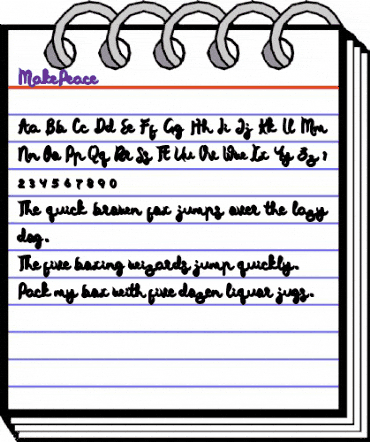 MakePeace
Aa Bb Cc Dd Ee Ff Gg Hh Ii Jj Kk Ll Mm
Nn Oo Pp Qq Rr Ss Tt Uu Vv Ww Xx Yy Zz 1
2 3 4 5 6 7 8 9 0
The quick brown fox jumps over the lazy
dog.
The five boxing wizards jump quickly.
Pack my box with five dozen liquor jugs.